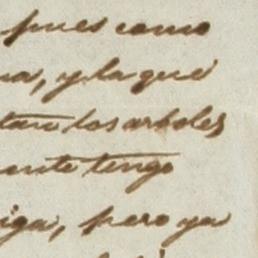 pues como
na, y la que
tan los arboles
ente tengo
iga, pero ya